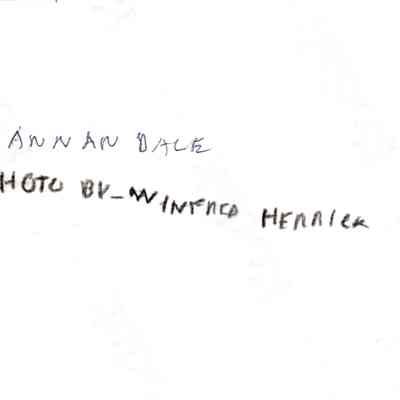 ANNAN DALE
HOTO BY_WINFRED HERRICK